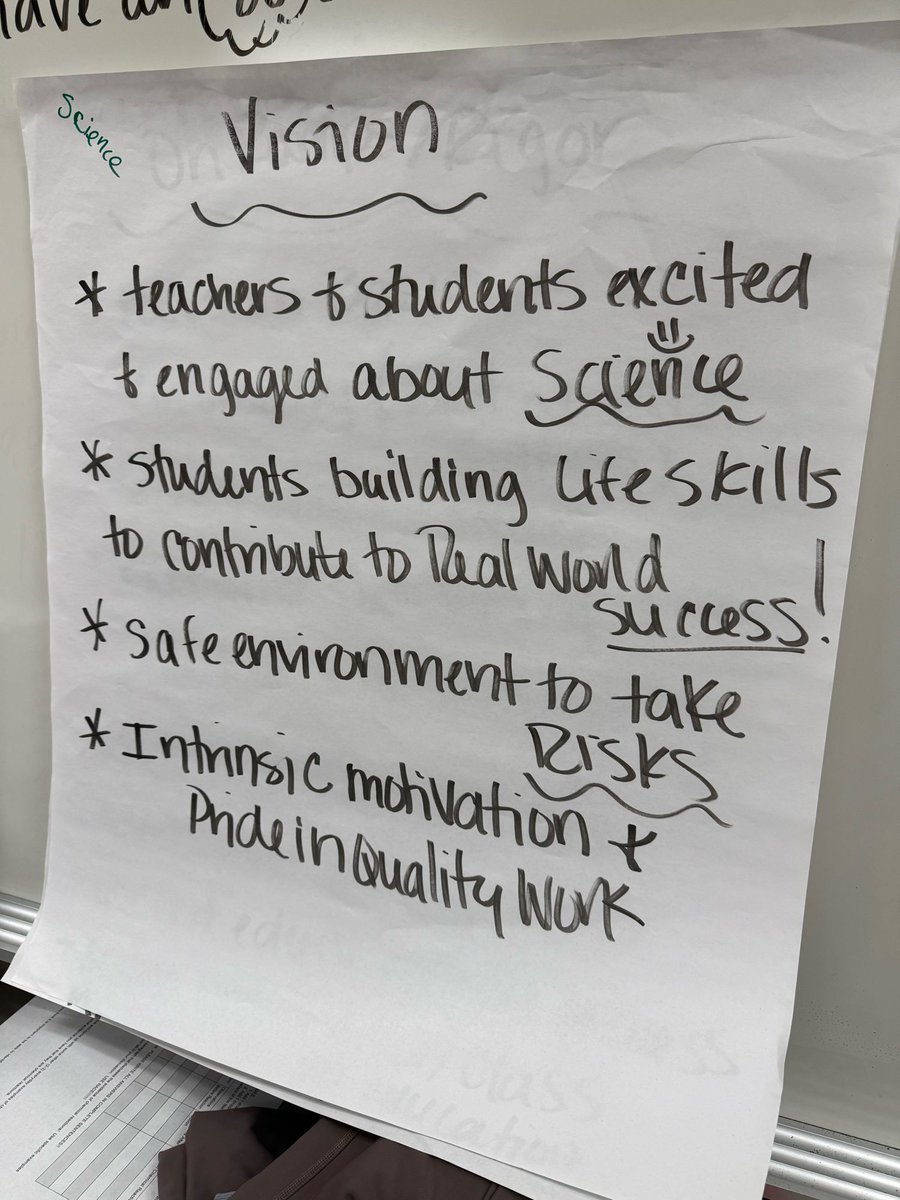 have an
Science
Vision
* teachers & students excited
& engaged about Science
* students building life skills
to contribute to Real World
success!
* safe environment to take
Risks
* Intrinsic motivation &
Pride in Quality Work